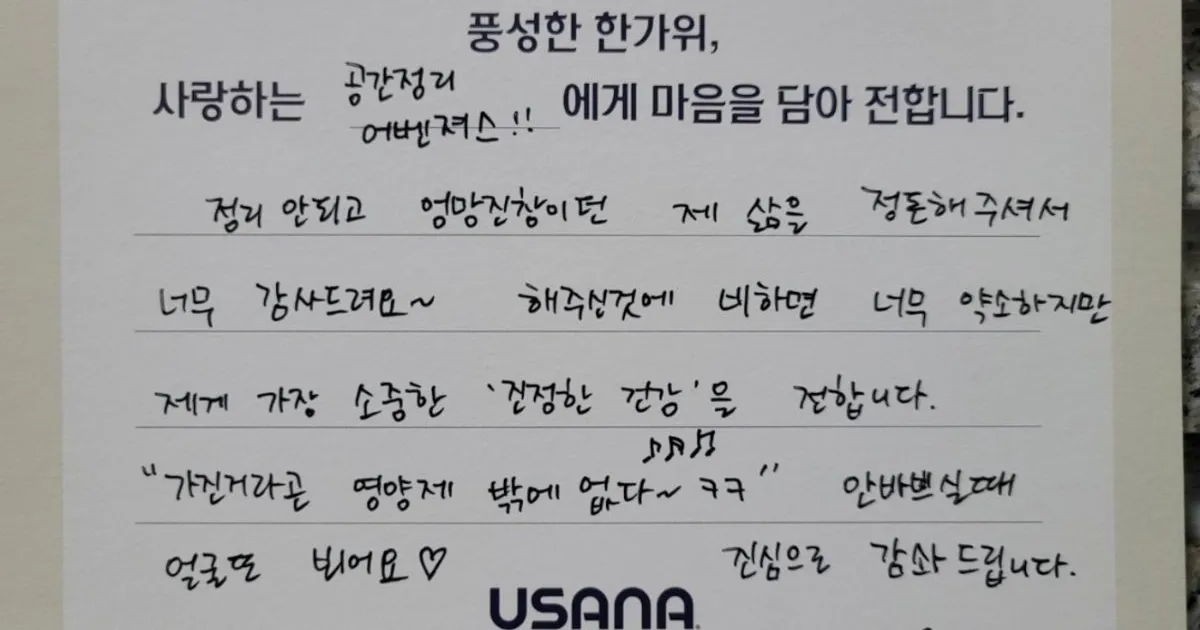 풍성한 한가위,
사랑하는 공간정리 어벤져스!! 에게 마음을 담아 전합니다.
정리 안되고 엉망진창이던 제 삶을 정돈해주셔서
너무 감사드려요~ 해주신것에 비하면 너무 약소하지만
제게 가장 소중한 '진정한 건강'을 전합니다.
"가진거라곤 영양제 밖에 없다~ ㅋㅋ" ♪♬♫ 안바쁘실때
얼굴또 뵈어요♡ 진심으로 감솨드립니다.
USANA